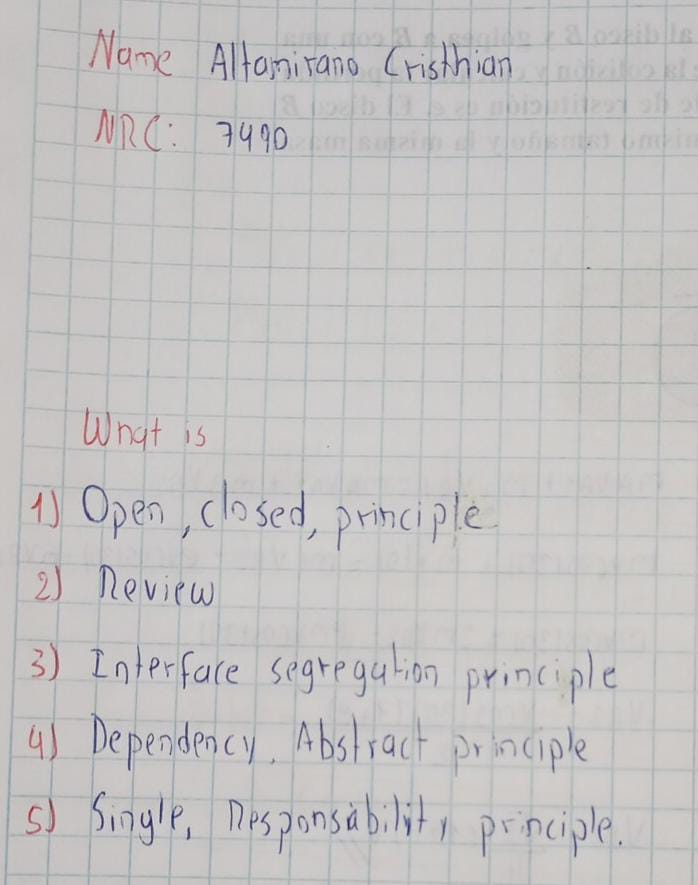 Name Altamirano Cristhian
NRC: 7490
What is
1) Open, closed, principle
2) Review
3) Interface segregation principle
4) Dependency, Abstract principle
5) Single, Responsability principle.